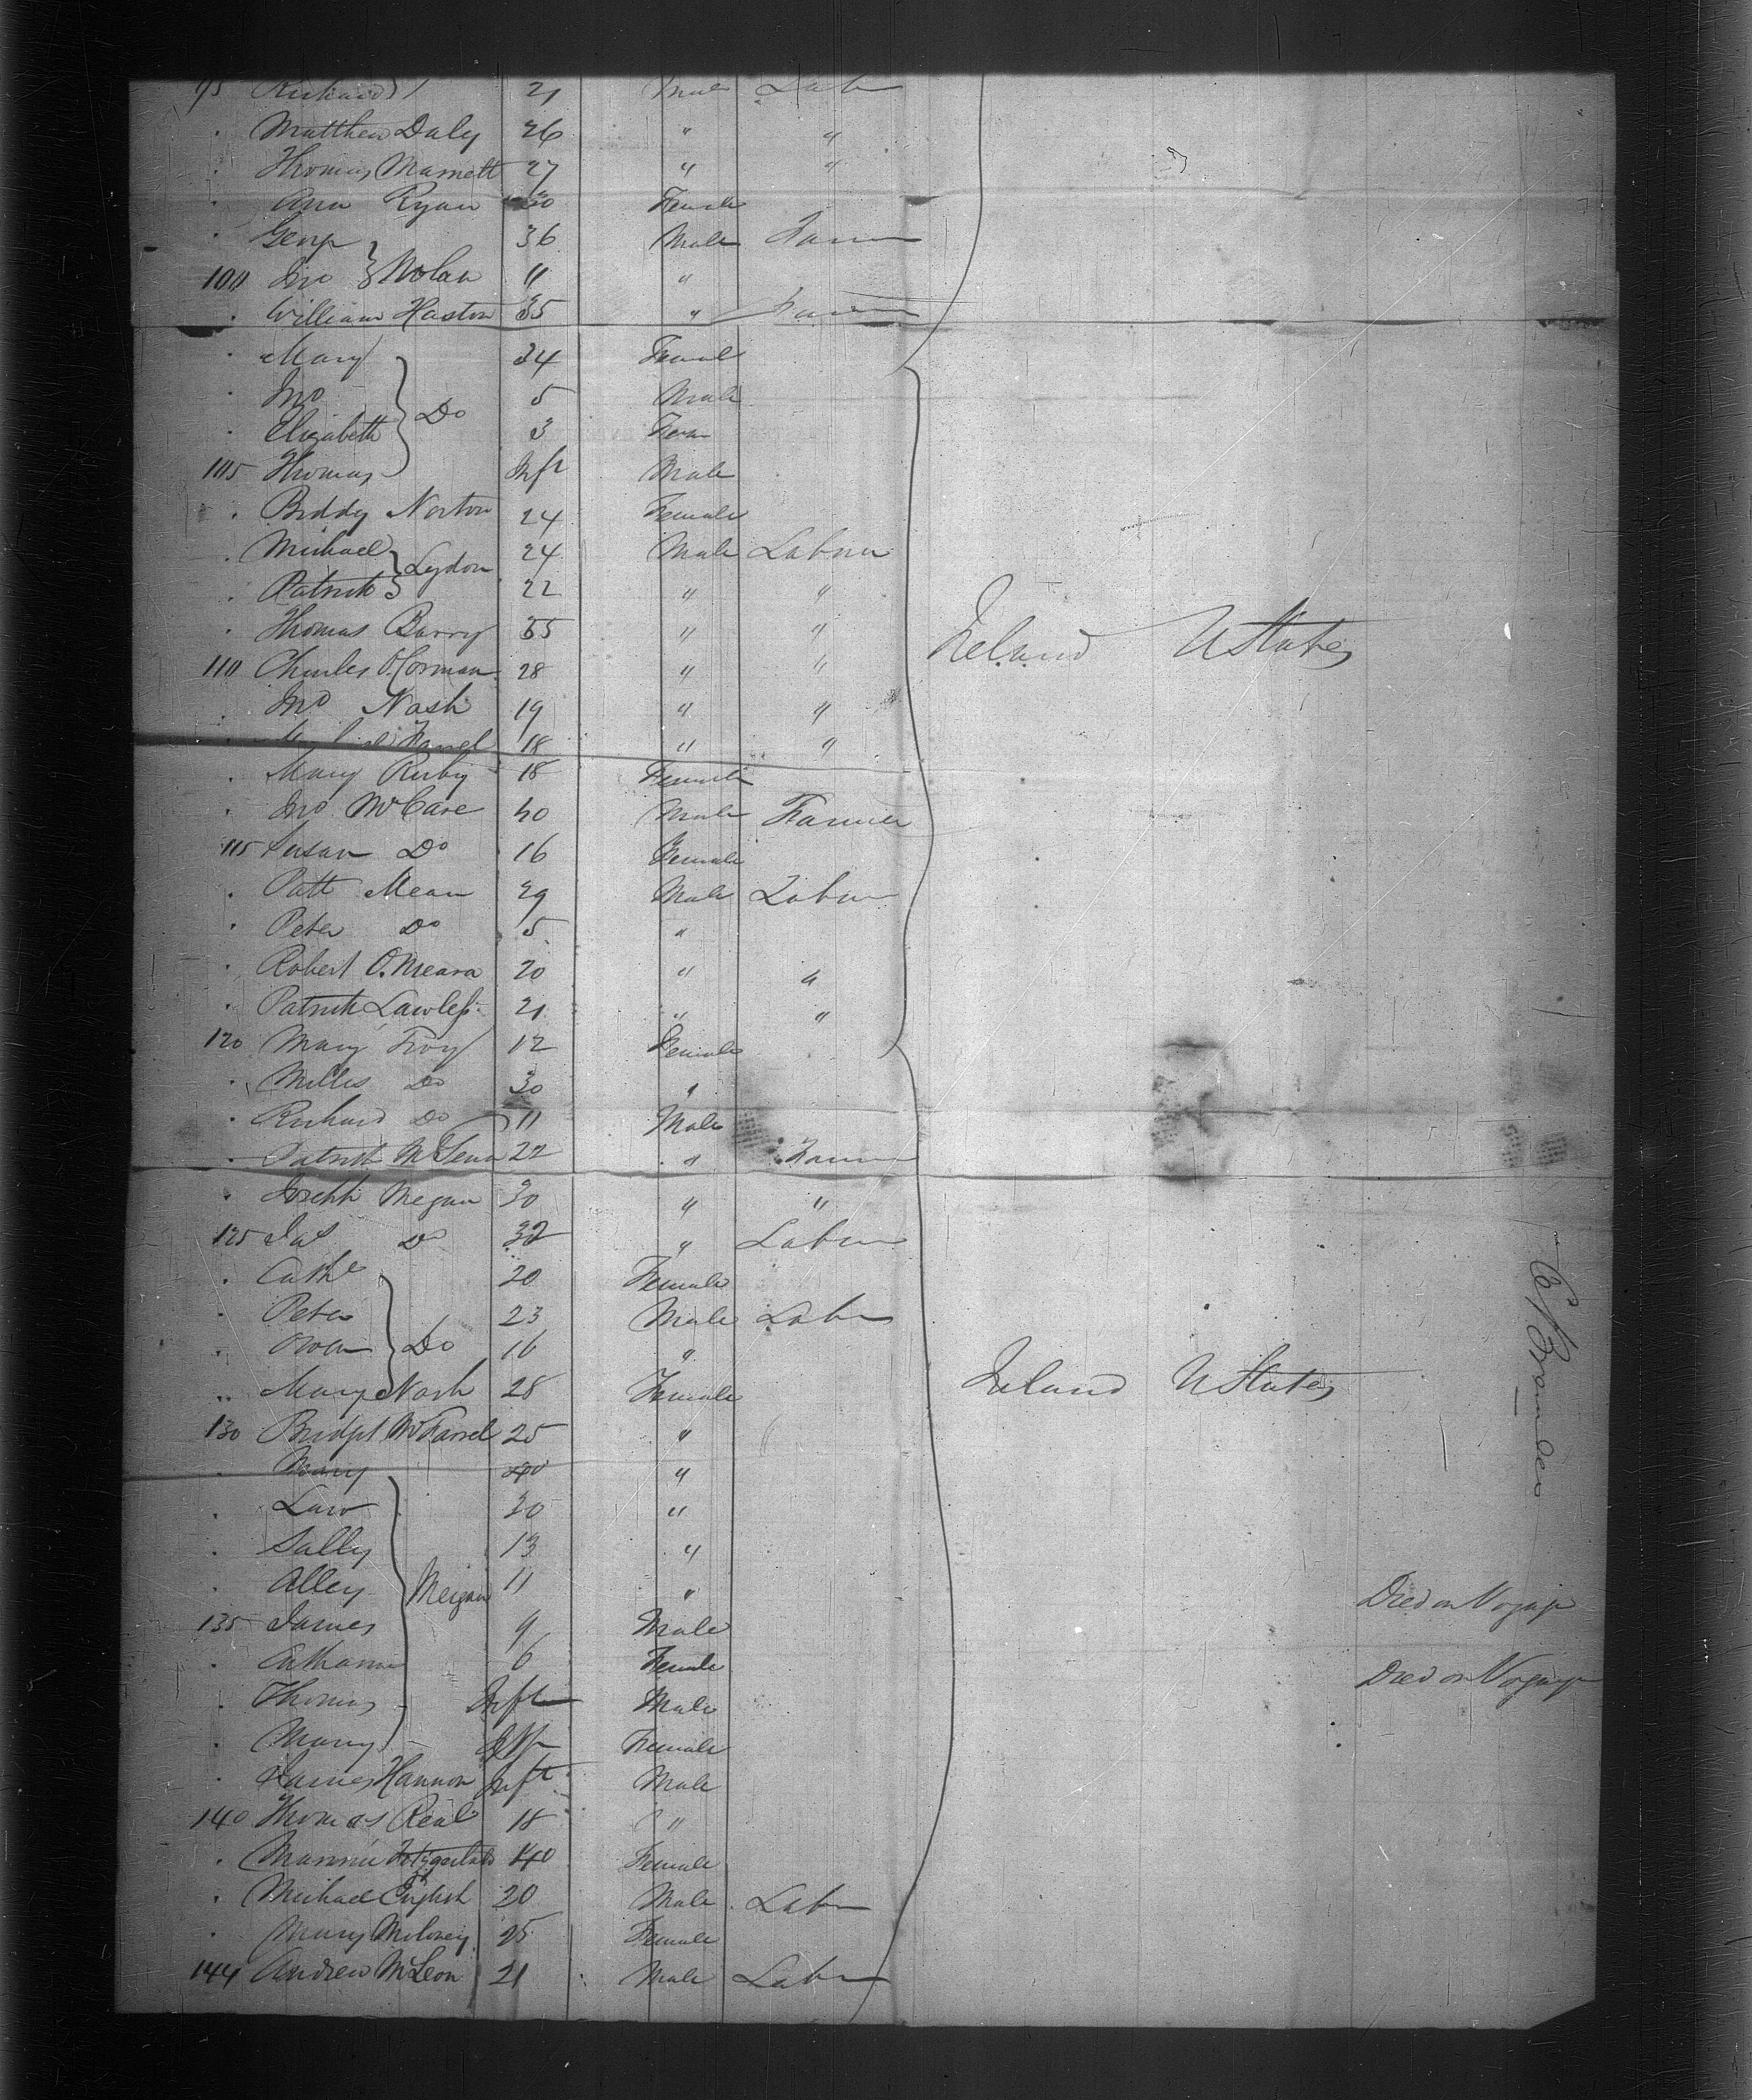 95 Richard 21 Male Labr
. Matthew Daly 26 " "
. Thomas Marnett 27 " "
. Ann Ryan 30 Female
. George 36 Male Farmer
100 Jno } Nolan 11 "
. William Haston 35 " Farmer
. Mary 34 Female
. Jno 5 Male
. Elizabeth } Do 3 Fem
105 Thomas Inft Male
. Biddy Norton 24 Female
. Michael 24 Male Labour
. Patrick } Lydon 22 " "
. Thomas Barry 35 " "
Ireland U States
110 Charles O.Gorman 28 " "
. Jno Nash 19 " "
. Farrel 18 " "
. Mary Rerby 18 Female
. Jno McCave 40 Male Farmer
115 Susan Do 16 Female
. Patt Mean 29 Male Labour
. Peter Do 5 "
. Robert O.Meara 20 " "
. Patrick Lawless 21 " "
120 Mary Troy 12 Female
. Milles Do 30 "
. Richard Do 11 Male
. Patrick 22 " Farmer
. Joseph Megan 30 " "
125 Jas Do 32 " Labour
. Cathe 20 Female
. Peter 23 Male Labr
. Owen } Do 16 "
. Mary Nash 28 Female
Ireland U States
130 Bridget McFarrel 25 "
. Mary 40 "
. Law 20 "
. Sally 13 "
. Alley } Meigan 11 " Died on Voyage
135 James 9 Male
. Catharine 6 Female Died on Voyage
. Thomas Inft Male
. Mary Inft Female
. James Hannon Inft Male
140 Thomas Real 18 "
. Fitzgerald 40 Female
. Michael English 20 Male Labr
. Mary Moloney 25 Female
144 Andrew McLeon 21 Male Labr